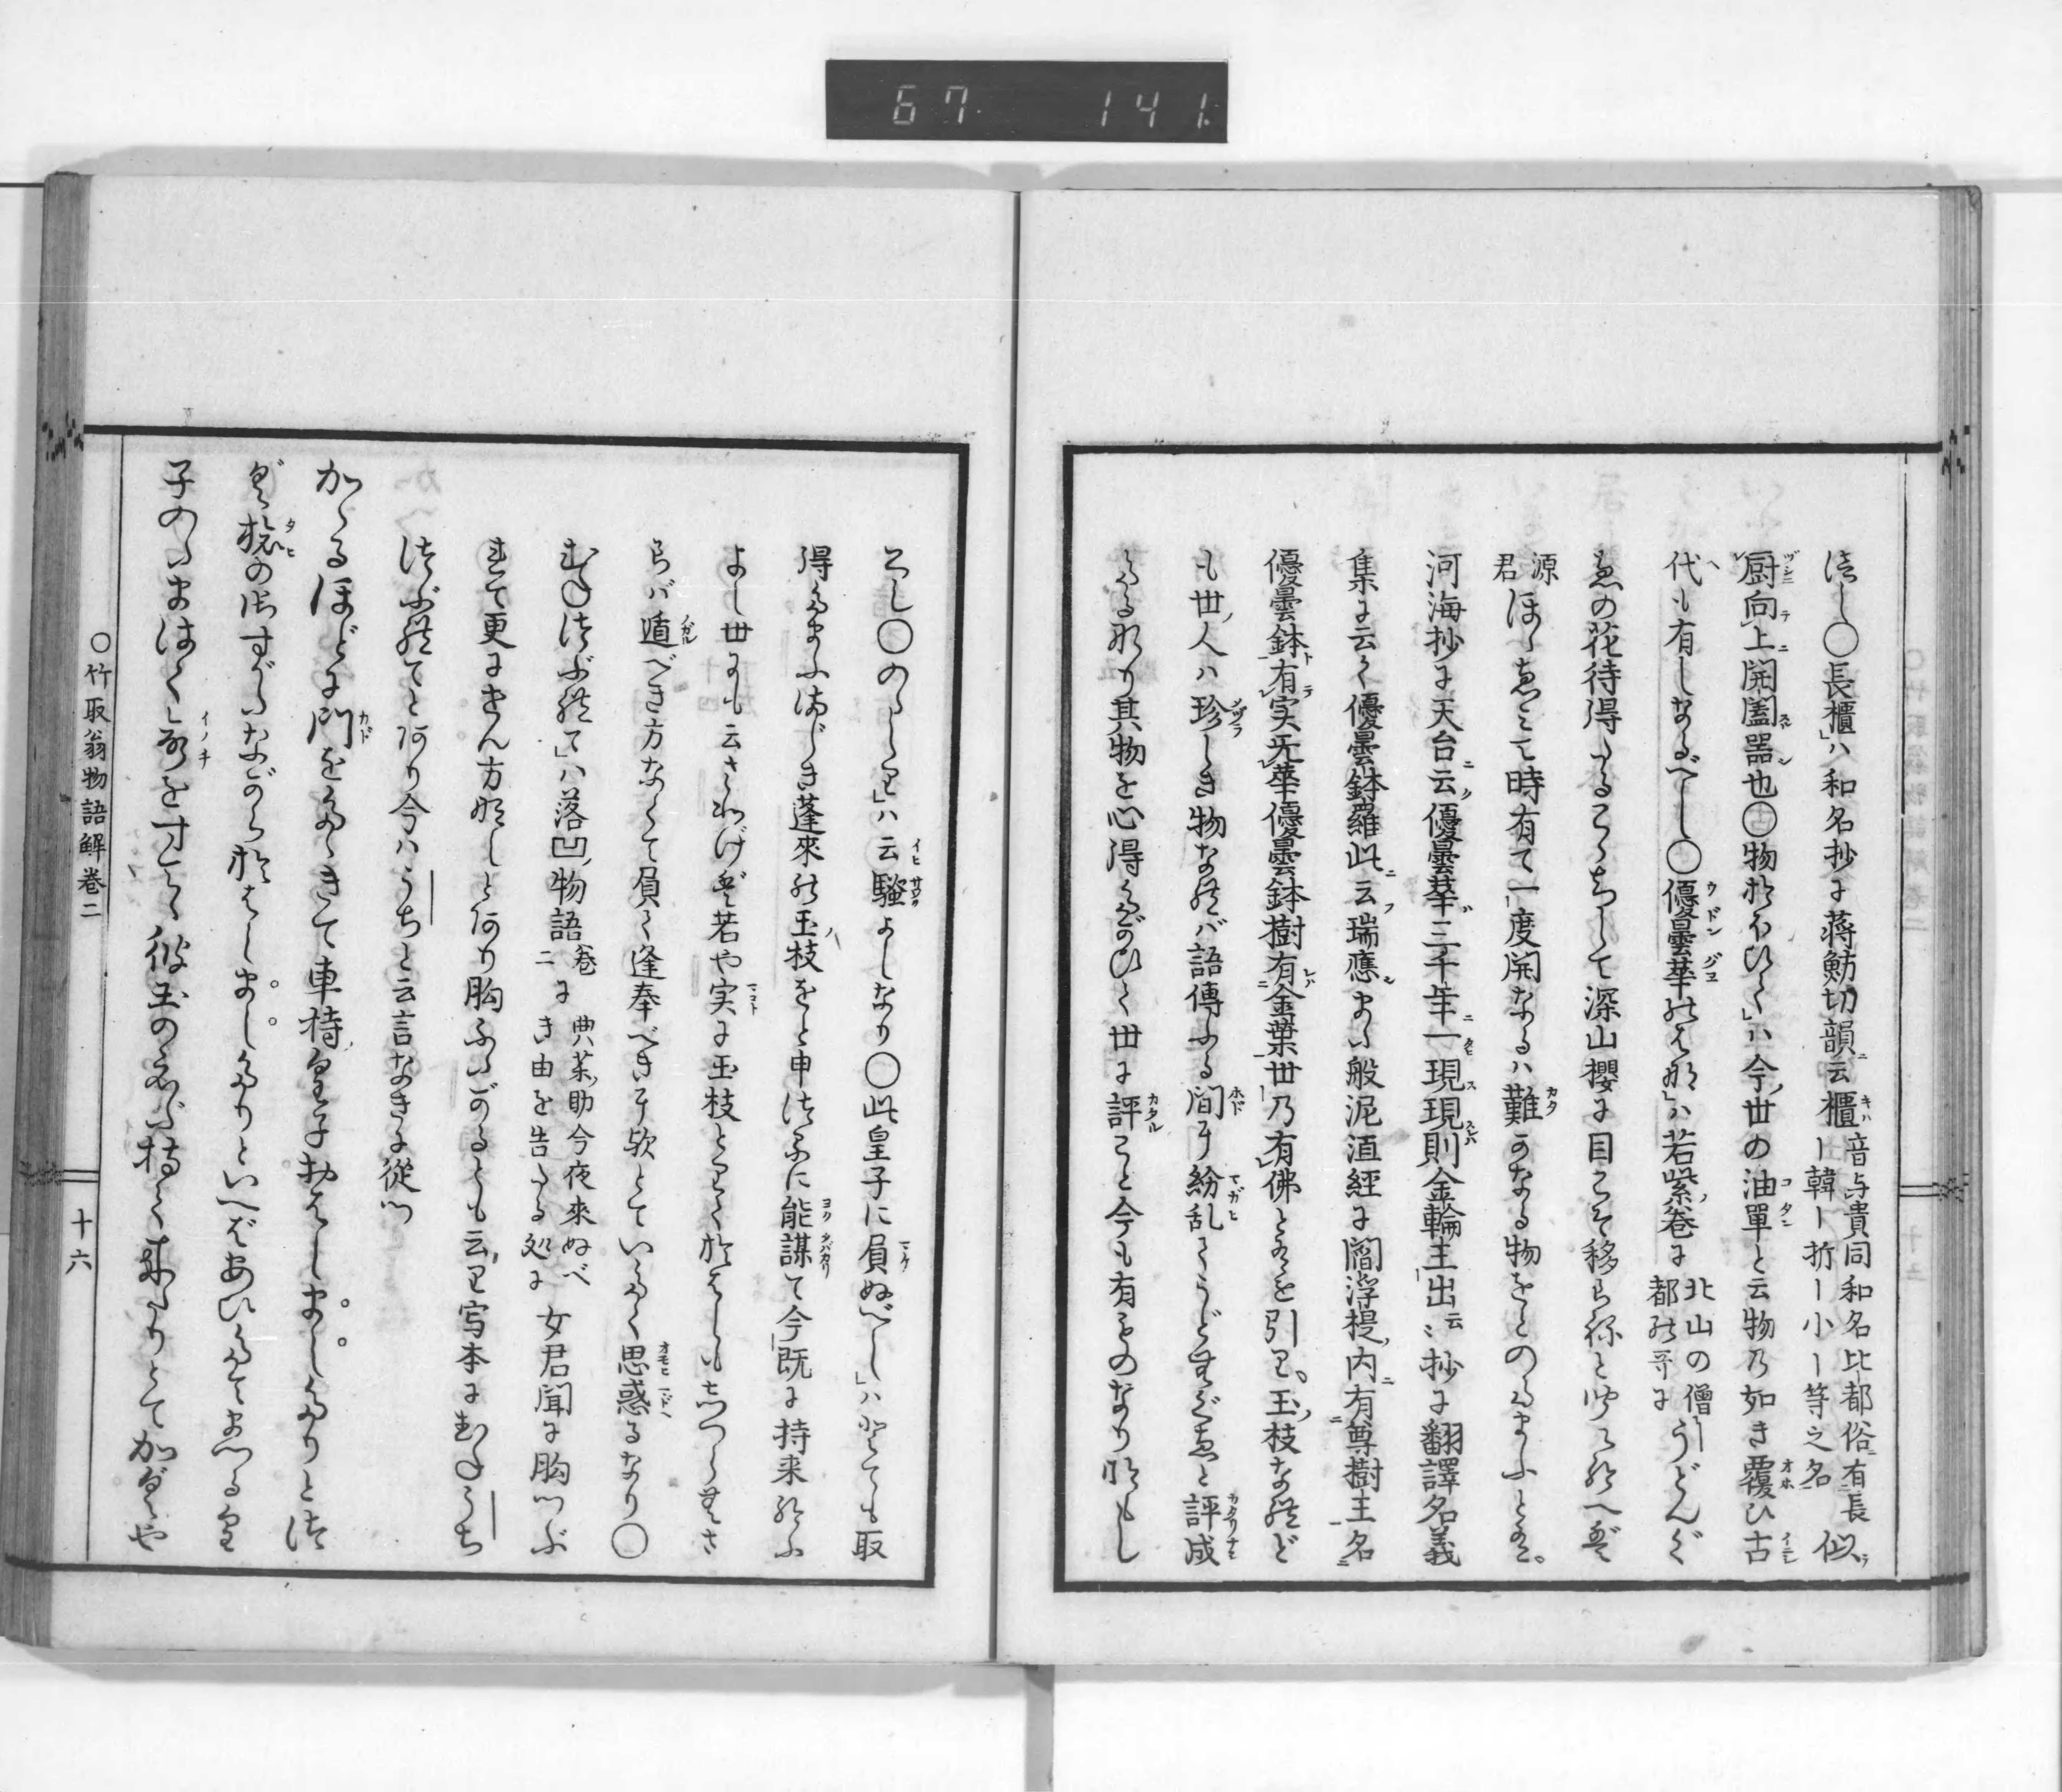 67 141
つし〇長櫃」ハ和名抄に蒋魴切韻云櫃音与貴同和名比都俗有長ー韓ー折ー小ー等之名似
厨向上開闔器也〇物おほひて」ハ今ノ世の油單と云物乃如き覆ひ古
代も有しなるべし〇優曇華のはな」ハ若紫ノ巻に北山の僧都の哥にうどんぐ
ゑの花待得たるこゝちして深山櫻に目こそ移らねと聞え給へば
源君ほゝゑみて時有て一度開なるハ難かなる物をとのたまふとあり。
河海抄に天台云優曇華三千年一現現則金輪王出云〻抄に翻譯名義
集に云く優曇鉢羅此云瑞應また般泥洹經に閻浮提ノ内有尊樹王名
優曇鉢有実无華優曇鉢樹有金葉世乃有佛とあるを引り。玉ノ枝なれど
も世ノ人ハ珍しき物なれバ語傳ふる間に紛乱てうどむぐゑと評成
たるなり其物を心得たがひて世に評こと今も有ものなりおもし
ろし〇のゝしり」ハ云騒よしなり〇此皇子に負ぬべし」ハとても取
得たまふまじき蓬來の玉ノ枝をと申つるに能謀て今既に持来給ふ
よし世にも云さわげば若や実に玉枝とりておはしもしつらむさ
らバ遁べき方なくて負て逢奉べきに歟とていたく思惑るなり〇
むねつぶれて」ハ落凹ノ物語巻二に典茶ノ助今夜來ぬべき由を告たる処に女君聞に胸つぶ
れて更にせん方なしとあり胸ふたがるとも云り写本にむねうち
つぶれてとあり今ハうちと云言なきに從つ
かゝるほどに門をたゝきて車持ノ皇子おはしましたりとつ
ぐ旅の御すがたながらおはしましたりといへばあひたてまつる皇
子のたまはく命をすてゝ彼玉のえだ持て來たりとてかぐや
〇竹取翁物語解巻二
十六